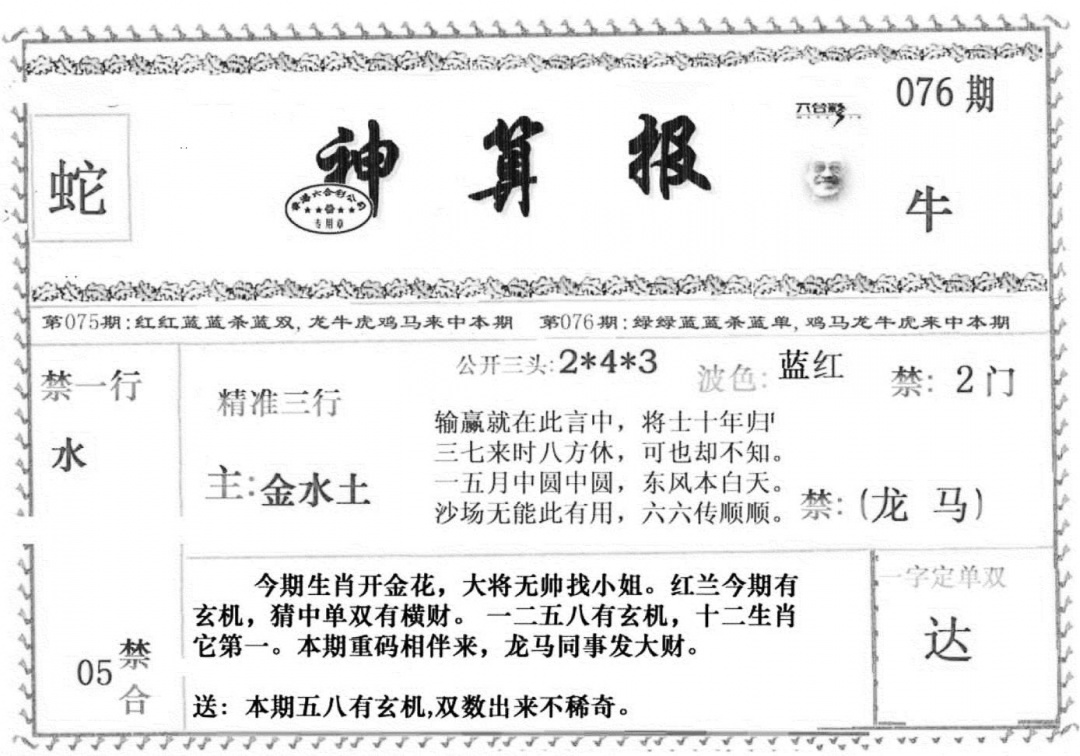 076 期
六合彩
蛇
神算报
香港六合彩公司
专用章
牛
第075期:红红蓝蓝杀蓝双,龙牛虎鸡马来中本期 第076期:绿绿蓝蓝杀蓝单,鸡马龙牛虎来中本期
禁一行
水
精准三行
主:金水土
公开三头:2*4*3
波色:蓝红
禁: 2门
输赢就在此言中，将士十年归
三七来时八方休，可也却不知。
一五月中圆中圆，东风本白天。
沙场无能此有用，六六传顺顺。
禁:(龙 马)
05
禁合
今期生肖开金花，大将无帅找小姐。红兰今期有
玄机，猜中单双有横财。 一二五八有玄机，十二生肖
它第一。本期重码相伴来，龙马同事发大财。
送：本期五八有玄机,双数出来不稀奇。
一字定单双
达